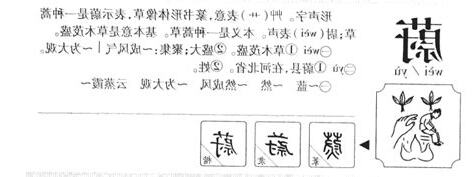 蔚
wèi / yù
形声字。艸(艹)表意,篆书形体像草,表示蔚是一种蒿
草;尉(wèi)表声。本义是一种蒿草。基本意是草木茂盛。
㊀wèi ①草木茂盛。②盛大;聚集:～风成～气|～为大观。
㊁yù ①蔚县,在河北省。②姓。
㊀～蓝～ 然～ 然成风 ～为大观 云蒸霞～
蔚 篆
蔚 隶
蔚 楷